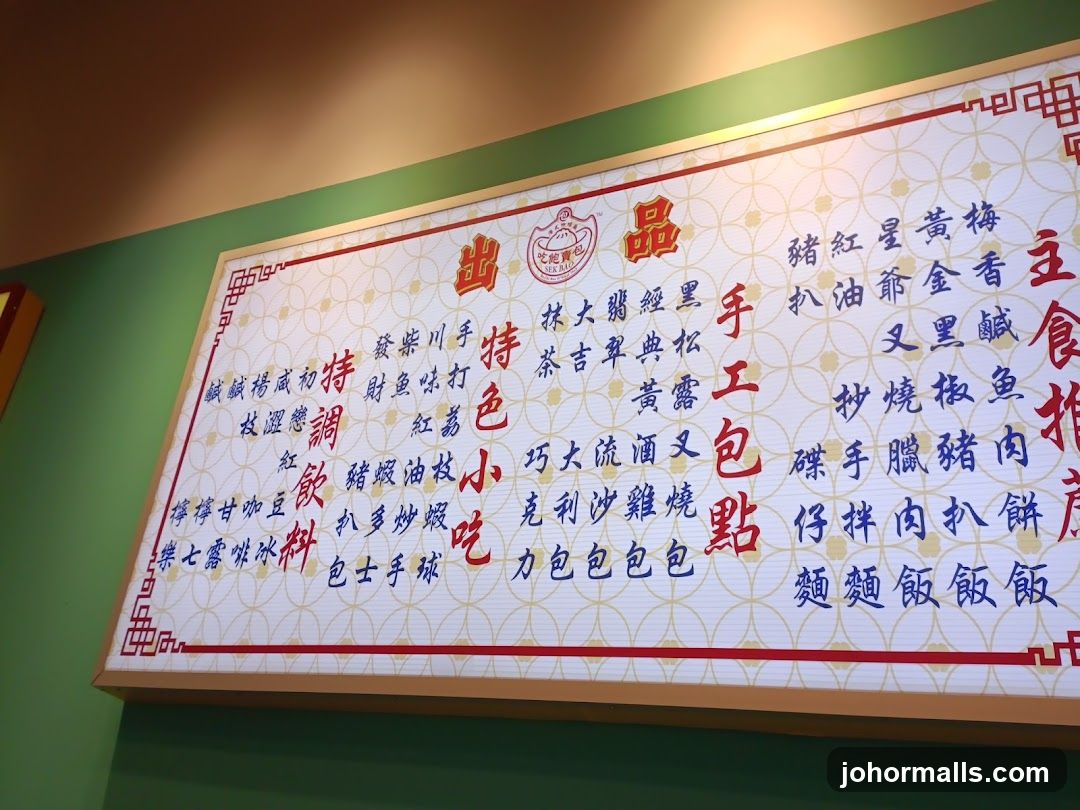 出品
吃飽賣包
SEK BAO
TM
主食推薦
梅香鹹魚肉餅飯
黃金黑椒豬扒飯
星爺叉燒臘肉飯
紅油抄手拌麵
豬扒碟仔麵
手工包點
黑松露叉燒包
經典黃酒雞包
翡翠流沙包
大吉大利包
抹茶巧克力包
特色小吃
手打荔枝蝦球
川味紅油炒手
柴魚蝦多士
發財豬扒包
特調飲料
初戀紅豆冰
咸澀咖啡
楊枝甘露
鹹檸七
鹹檸樂
johormalls.com